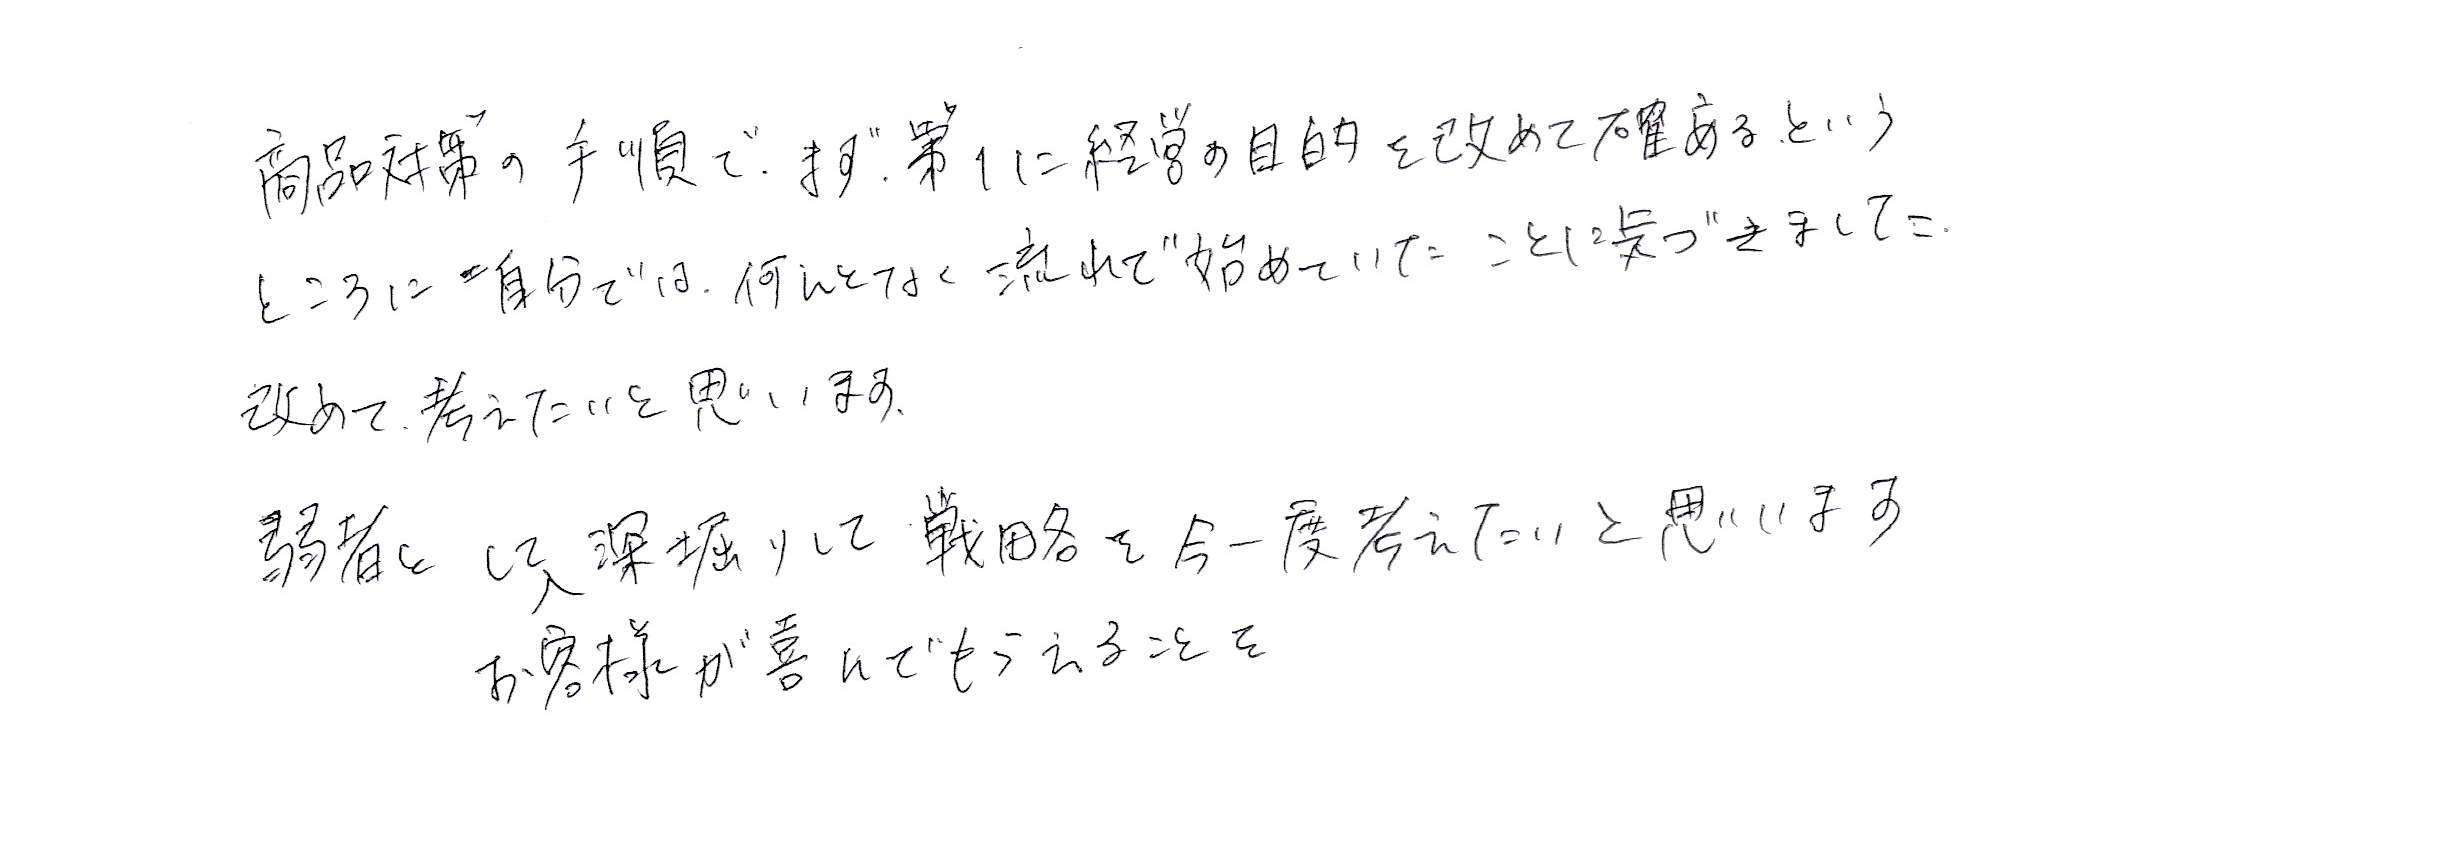 商品対策の手順で、まず、第1に経営の目的を改めて確める、という
ところに自分では、何んとなく流れで始めていたことに気づきました。
改めて、考えたいと思います。
弱者として深堀りして戦略を今一度考えたいと思います
お客様が喜んでもらえることを